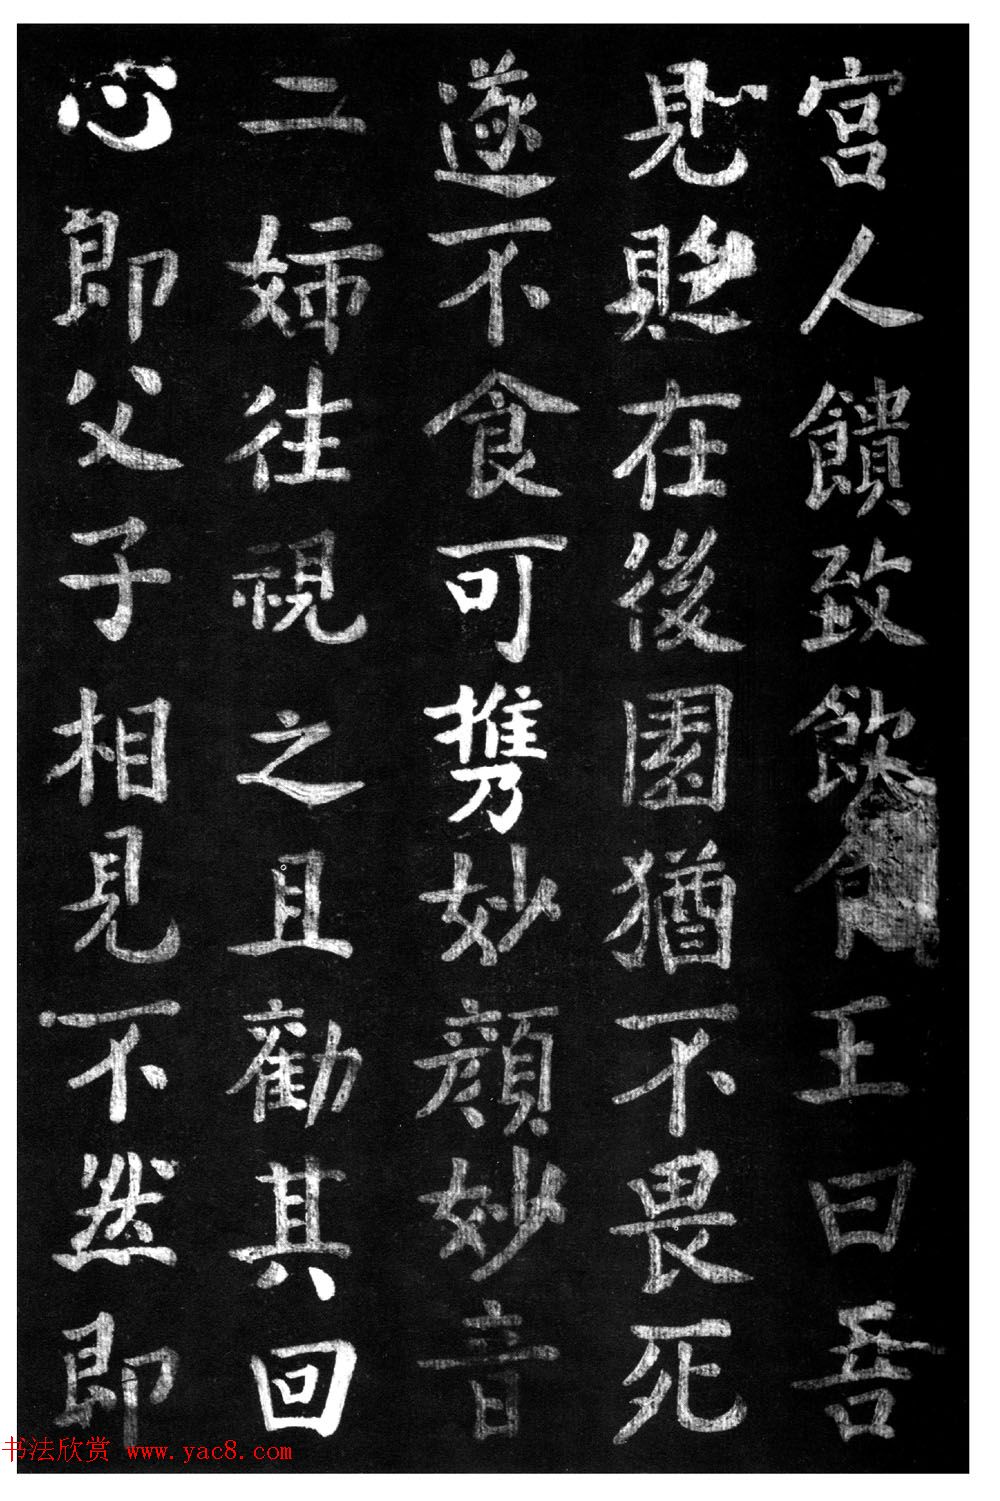 宫人饋致飲王曰吾
見貶在後園猶不畏死
遂不食可携妙顔妙音
二姉往視之且勸其回
心即父子相見不然即
书法欣赏 www.yac8.com